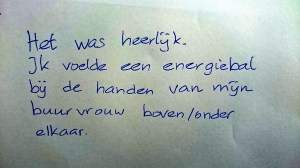 Het was heerlijk.
Ik voelde een energiebal
bij de handen van mijn
buurvrouw boven/onder
elkaar.